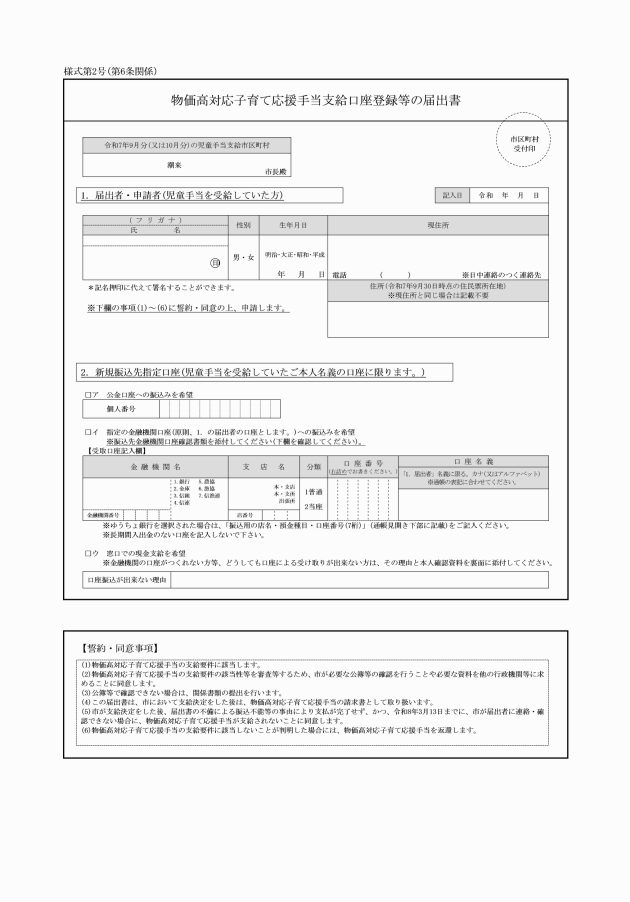 様式第2号(第6条関係)
物価高対応子育て応援手当支給口座登録等の届出書
市区町村
受付印
令和7年9月分(又は10月分)の児童手当支給市区町村
潮来
市長殿
1. 届出者・申請者(児童手当を受給していた方)
記入日 令和 年 月 日
(フリガナ)
氏 名
性別
生年月日
現住所
印
男・女
明治・大正・昭和・平成
年 月 日
電話 ( ) ※日中連絡のつく連絡先
*記名押印に代えて署名することができます。
住所(令和7年9月30日時点の住民票所在地)
※現住所と同じ場合は記載不要
※下欄の事項(1)~(6)に誓約・同意の上、申請します。
2. 新規振込先指定口座(児童手当を受給していたご本人名義の口座に限ります。)
□ア 公金口座への振込みを希望
個人番号
□イ 指定の金融機関口座(原則、1. の届出者の口座とします。)への振込みを希望
※振込先金融機関口座確認書類を添付してください(下欄を確認してください)。
【受取口座記入欄】
金融機関名
支店名
分類
口座番号
(右詰めでお書きください。)
口座名義
「1. 届出者」名義に限る。カナ(又はアルファベット)
※通帳の表記に合わせてください。
1.銀行 5.農協
2.金庫 6.漁協
3.信組 7.信漁連
4.信連
本・支店
本・支所
出張所
1普通
2当座
金融機関番号
店番号
※ゆうちょ銀行を選択された場合は、「振込用の店名・預金種目・口座番号(7桁)」(通帳見開き下部に記載)をご記入ください。
※長期間入出金のない口座を記入しないで下さい。
□ウ 窓口での現金支給を希望
※金融機関の口座がつくれない方等、どうしても口座による受け取りが出来ない方は、その理由と本人確認資料を裏面に添付してください。
口座振込が出来ない理由
【誓約・同意事項】
(1)物価高対応子育て応援手当の支給要件に該当します。
(2)物価高対応子育て応援手当の支給要件の該当性等を審査等するため、市が必要な公簿等の確認を行うことや必要な資料を他の行政機関等に求
めることに同意します。
(3)公簿等で確認できない場合は、関係書類の提出を行います。
(4)この届出書は、市において支給決定をした後は、物価高対応子育て応援手当の請求書として取り扱います。
(5)市が支給決定をした後、届出書の不備による振込不能等の事由により支払が完了せず、かつ、令和8年3月13日までに、市が届出者に連絡・確
認できない場合に、物価高対応子育て応援手当が支給されないことに同意します。
(6)物価高対応子育て応援手当の支給要件に該当しないことが判明した場合には、物価高対応子育て応援手当を返還します。